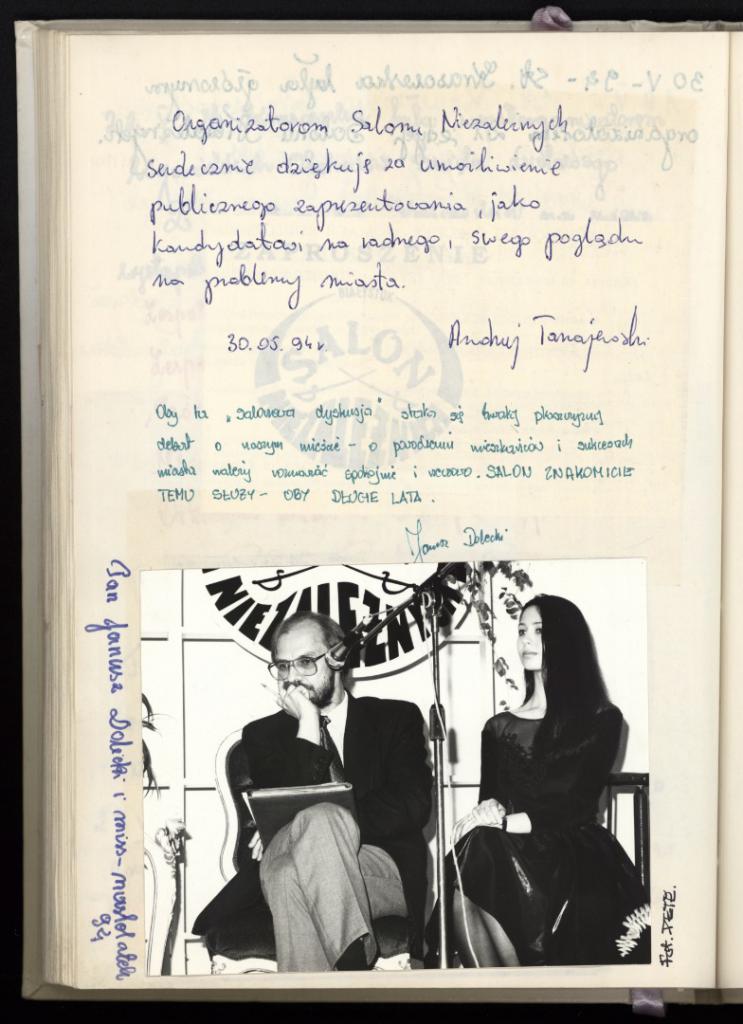 Organizatorom Salonu Niezależnych
serdecznie dziękuję za umożliwienie
publicznego zaprezentowania, jako
kandydatowi na radnego, swego poglądu
na problemy miasta.
30.05.94r. Andrzej
Oby ta "salonowa dyskusja" stała się
debat o naszym mieście - o powodzeniu mieszkańców i sukcesach
miasta należy rozmawiać spokojnie i rzeczowo. SALON ZNAKOMICIE
TEMU SŁUŻY - OBY DŁUGIE LATA.
Janusz Dolecki
NIEZALEŻNYCH
Pan Janusz Dolecki i miss-nastolatek
94
Fot.
ZAPROSZENIE
SALON
30 V - 94